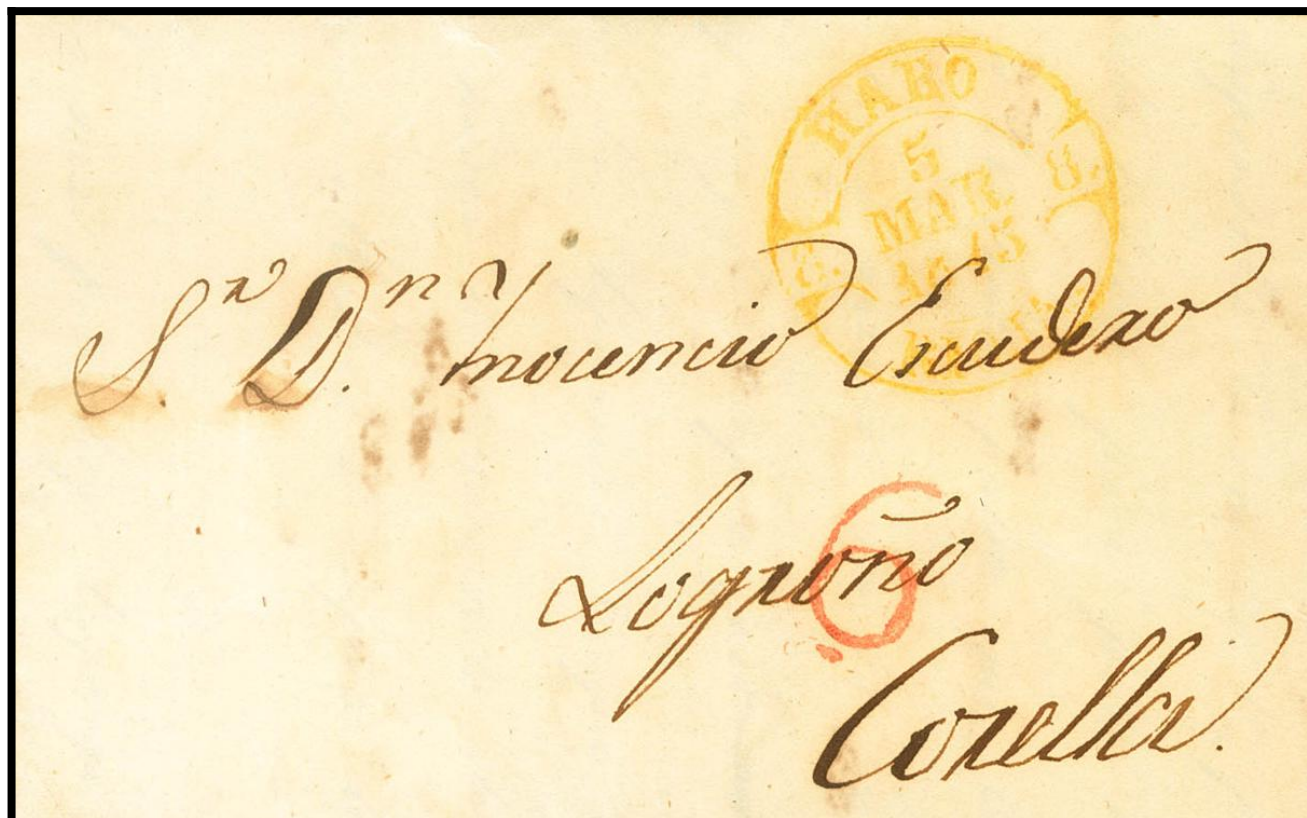 HARO
5
MAR
1845
8. 8.
Sr. Dn. Ynocencio Escudero
6
Logroño
Corella.